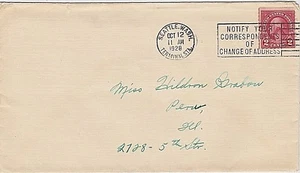 SEATTLE, WASH.
OCT 12
11 AM
1928
TERMINAL STA.
NOTIFY YOUR
CORRESPONDENTS
OF
CHANGE OF ADDRESS
2 2
Miss Hildron Grabow
Peru,
Ill.
2128 - 5th Str.